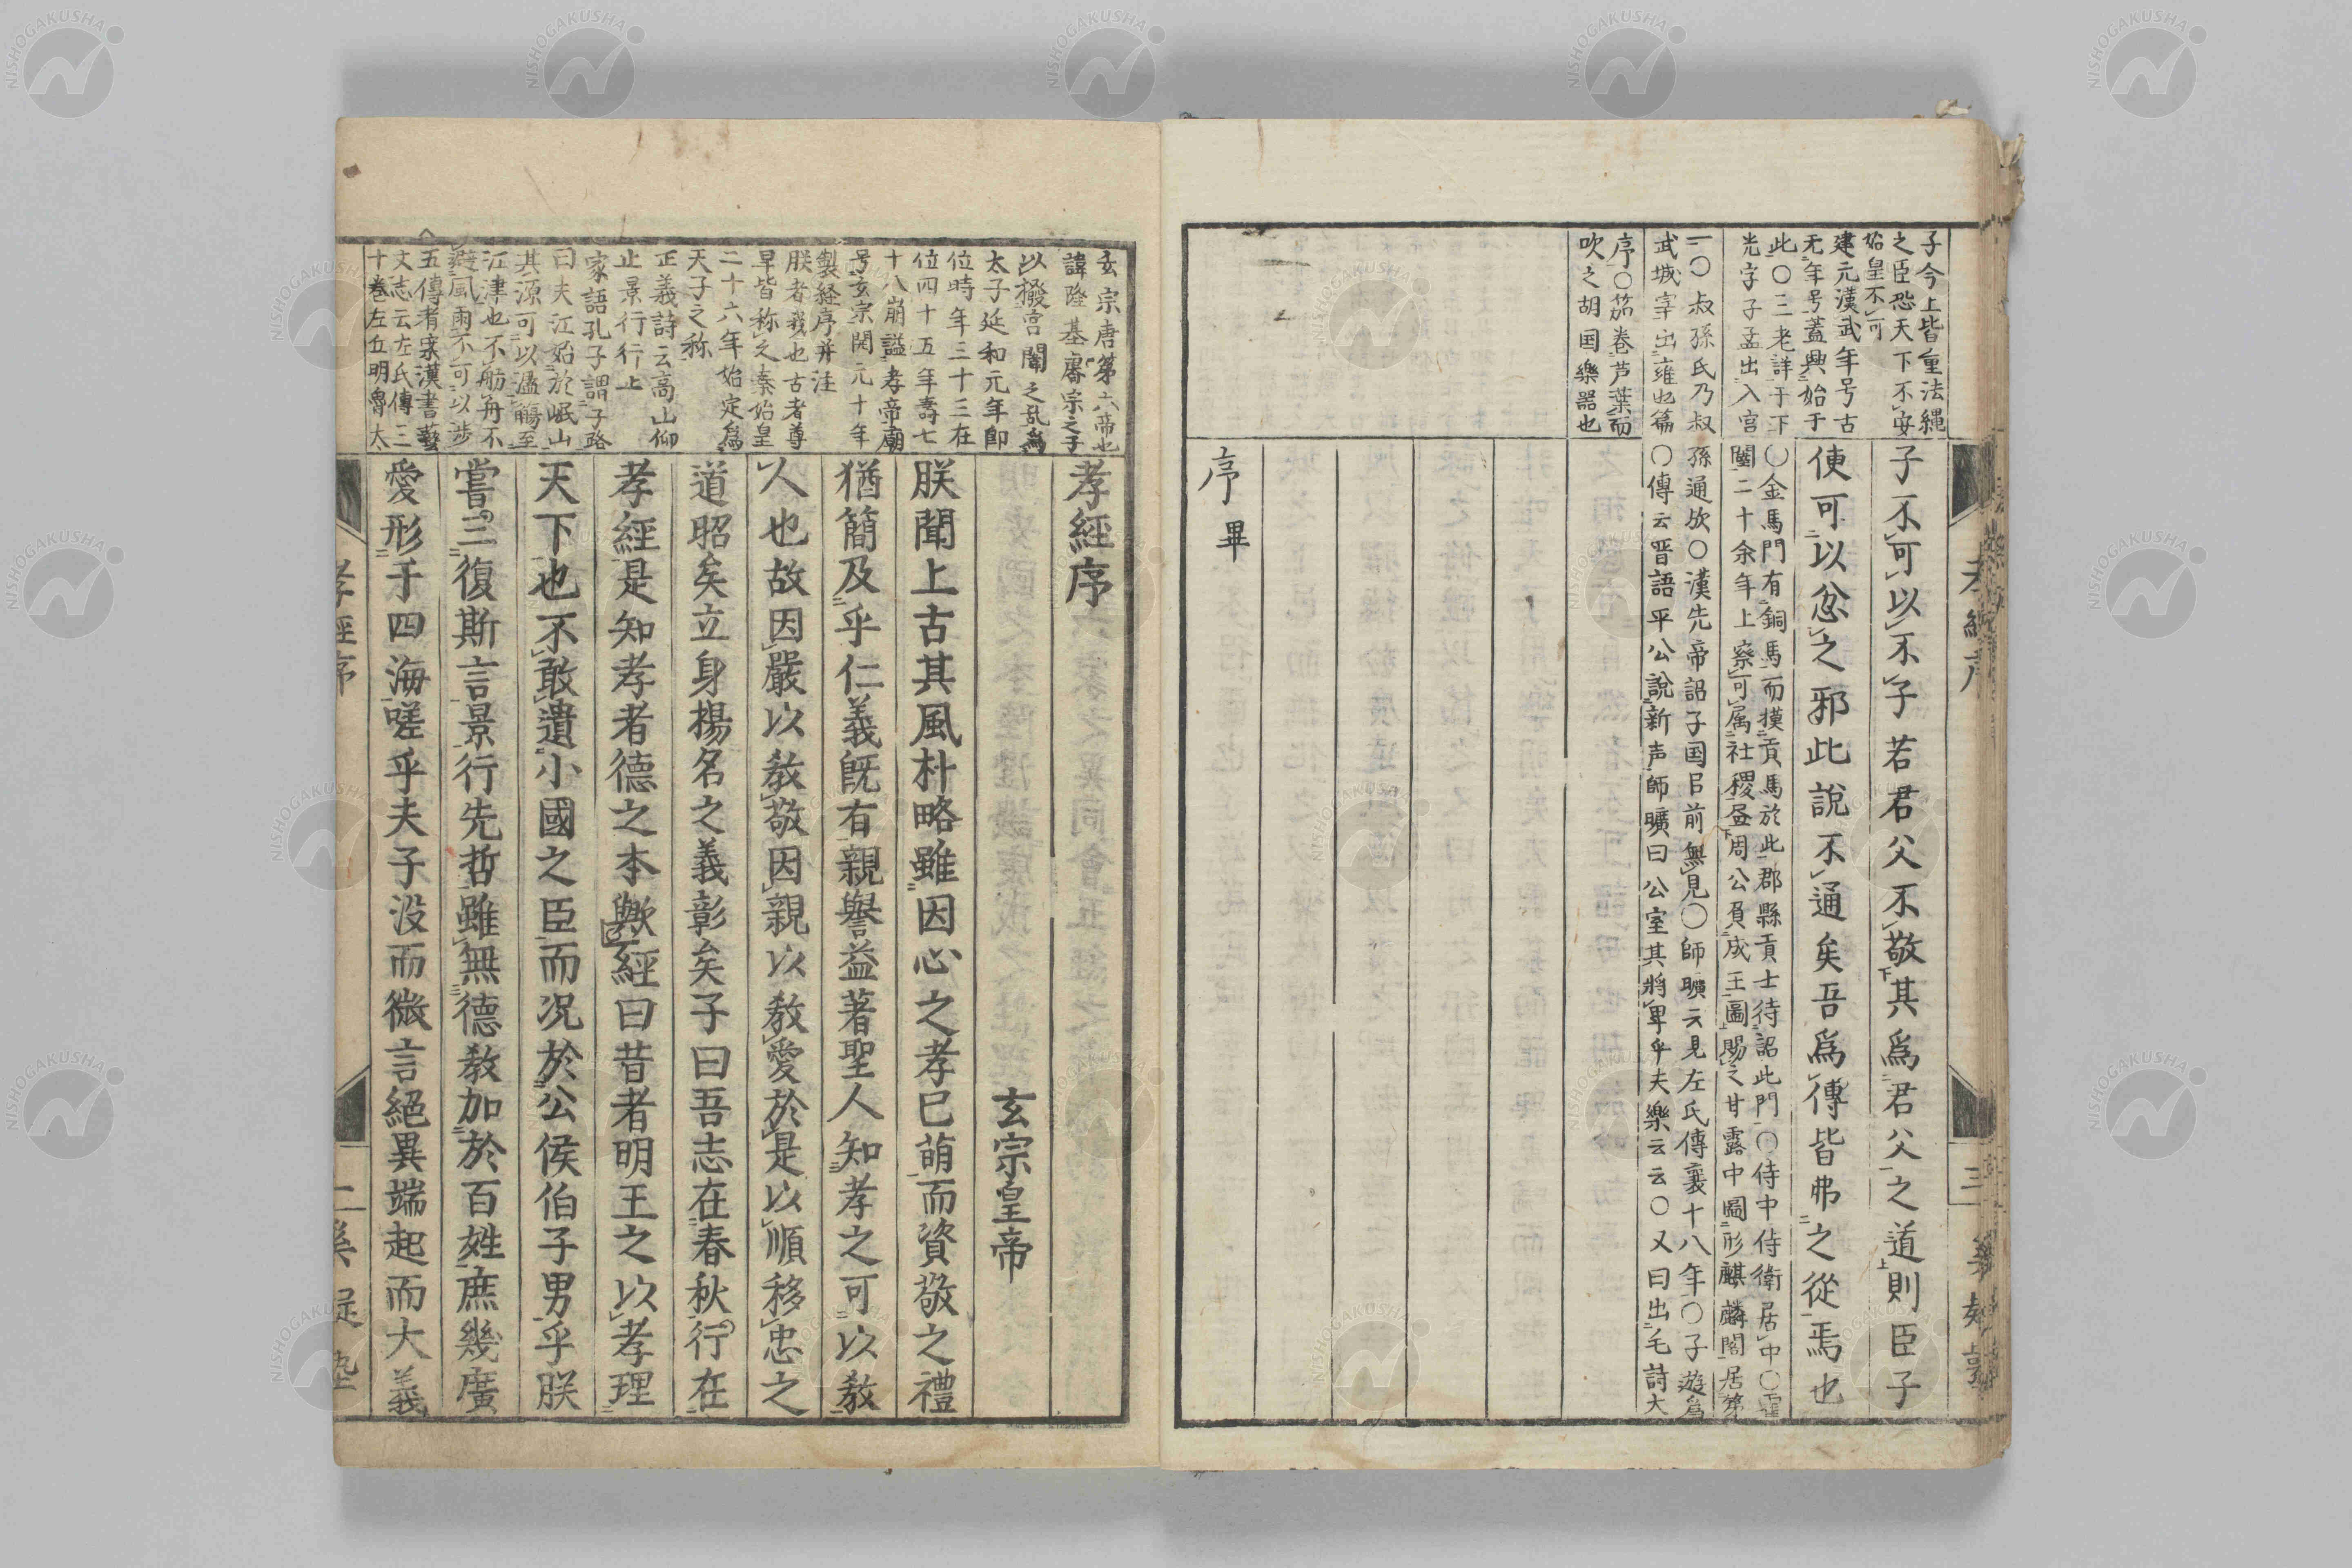 子今上皆重法縄
之臣恐天下不安
始皇不可
建元漢武年号古
无年号蓋興始于
此〇三老詳于下
光字子孟出入宮
一〇叔孫氏乃叔
武城宰出雍也篇
序〇笳卷芦葉而
吹之胡国樂器也
子不可以不子若君父不敬其爲君父之道則臣子
使可以忿之邪此說不通矣吾爲傳皆弗之從焉也
〇金馬門有銅馬而摸貢馬於此郡縣貢士待詔此門〇侍中侍衛居中〇霍
闥二十余年上察可属社稷畫周公負成王圖賜之甘露中圖形麒麟閣居第
孫通欤〇漢先帝詔子国㠯前無見〇師曠云見左氏傳襄十八年〇子遊爲
〇傳云晋語平公説新声師曠曰公室其將卑乎夫樂云云〇又曰出毛詩大
序畢
三
玄宗唐第六帝也
諱隆基睿宗之子
以撥宮闈之乱爲
太子延和元年即
位時年三十三在
位四十五年壽七
十八崩謚孝帝廟
号玄宗開元十年
製経序并注
朕者我也古者尊
早皆称之秦始皇
二十六年始定爲
天子之称
正義詩云高山仰
止景行行止
家語孔子謂子路
曰夫江始於岷山
其源可以濫觴至
江津也不舫舟不
避風雨不可以涉
五傳者案漢書藝
文志云左氏傳三
十巻左丘明魯太
孝經序
玄宗皇帝
朕聞上古其風朴略雖因心之孝已萌而資敬之禮
猶簡及乎仁義既有親譽益著聖人知孝之可以教
人也故因嚴以教敬因親以教愛於是以順移忠之
道昭矣立身揚名之義彰矣子曰吾志在春秋行在
孝經是知孝者德之本歟經曰昔者明王之以孝理
天下也不敢遺小國之臣而况於公侯伯子男乎朕
嘗三復斯言景行先哲雖無德教加於百姓庶幾廣
愛形于四海嗟乎夫子没而微言絕異端起而大義
NISHOGAKUSHA